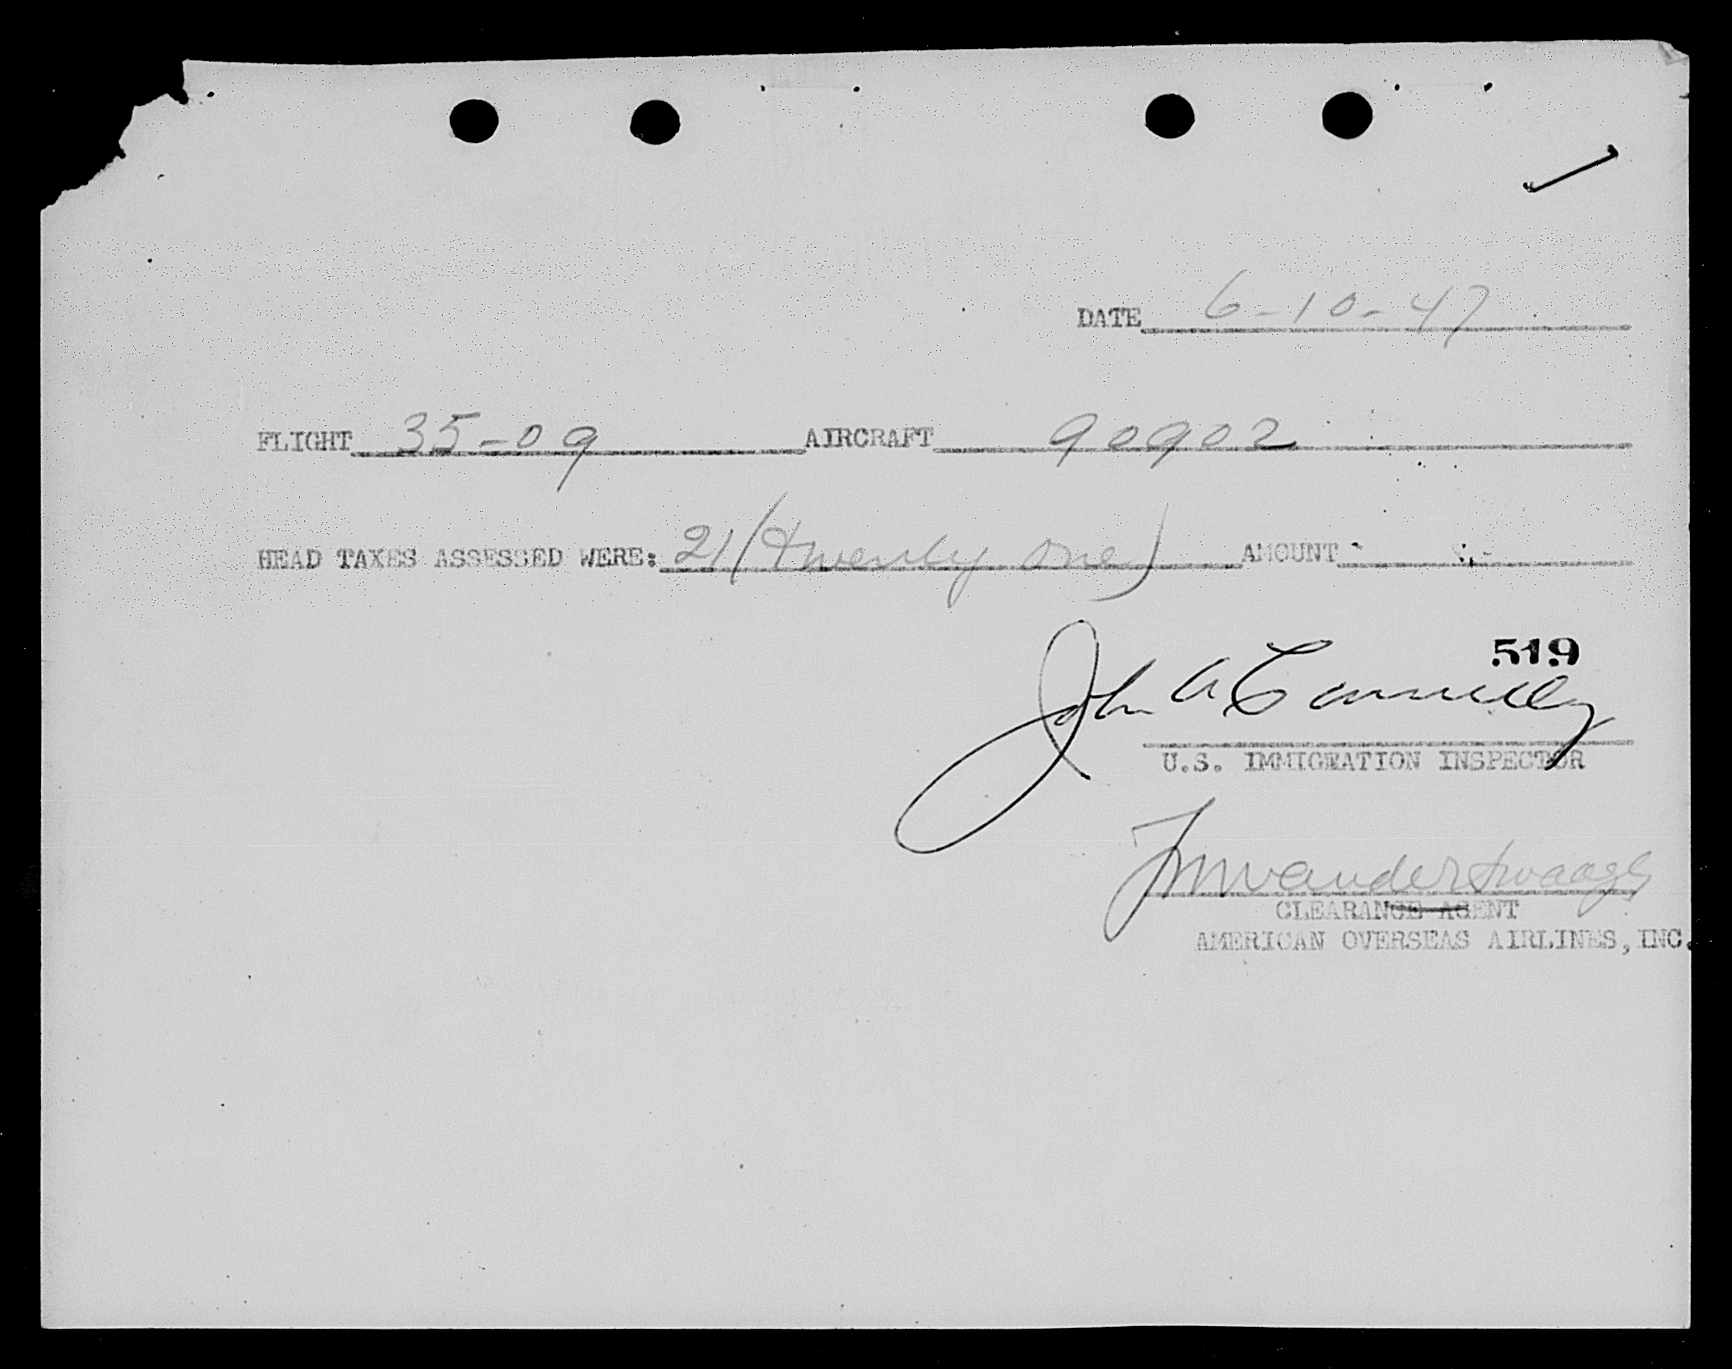 DATE 6-10-47
FLIGHT 35-09 AIRCRAFT 90902
HEAD TAXES ASSESSED WERE: 21 (twenty one) AMOUNT
519
John A Connelly
U.S. IMMIGRATION INSPECTOR
CLEARANCE AGENT
AMERICAN OVERSEAS AIRLINES, INC.